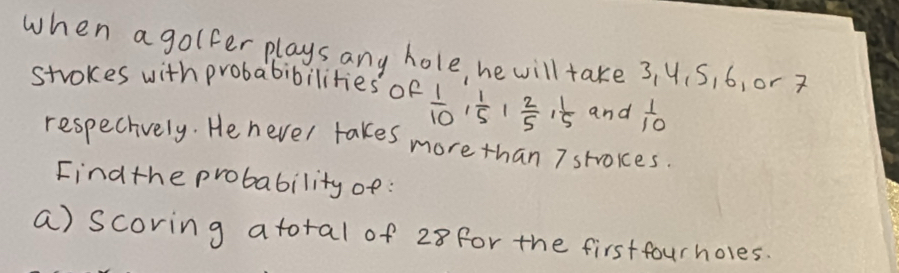 When a golfer plays any hole, he will take 3, 4, 5, 6, or 7
strokes with probabibilities of 1/10, 1/5, 2/5, 1/5 and 1/10
respectively. He never takes more than 7 strokes.
Find the probability of:
a) Scoring a total of 28 for the first four holes.